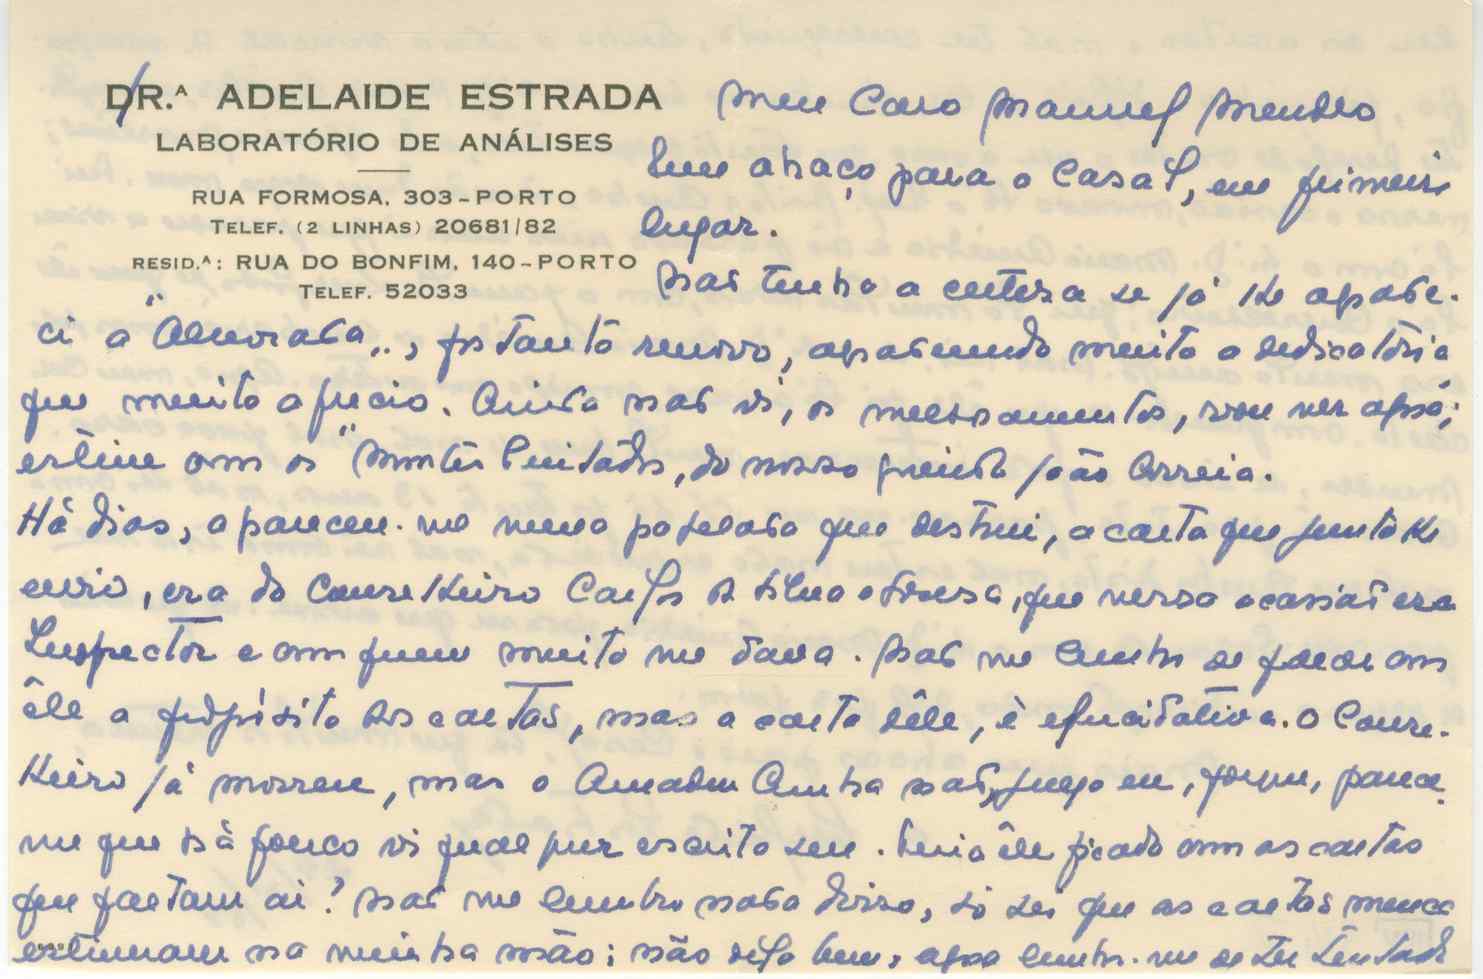 DR.ᴬ ADELAIDE ESTRADA
LABORATÓRIO DE ANÁLISES
RUA FORMOSA, 303-PORTO
TELEF. (2 LINHAS) 20681/82
RESID.ᴬ: RUA DO BONFIM, 140-PORTO
TELEF. 52033
Meu Caro Manuel Mendes
Um abraço para o Casal, em primeiro
lugar.
Não tenho a certeza se já lhe agrade-
ci a "Alvorada", portanto renovo, agradecendo muito a dedicatória
que muito aprecio. Ainda não vi, os medicamentos, vou ver agora;
estive com os "Montes Pintados", do nosso querido João Correia.
Há dias, apareceu-me numa papelada que destrui, a carta que junto lhe
envio, era do Conselheiro Carlos da Silva e Sousa, que nessa ocasião era
Inspector e com quem muito me dava. Não me lembro de falar com
êle a propósito das cartas, mas a carta dêle, é elucidativa. O Conse-
lheiro já morreu, mas o Amadeu Cunha não, julgo eu, porque, parece-
me que há pouco vi qualquer escrito seu. Teria êle ficado com as cartas
que faltam aí? Não me lembro nada disso, só sei que as cartas nunca
estiveram na minha mão; não digo bem, agora lembro-me de ter